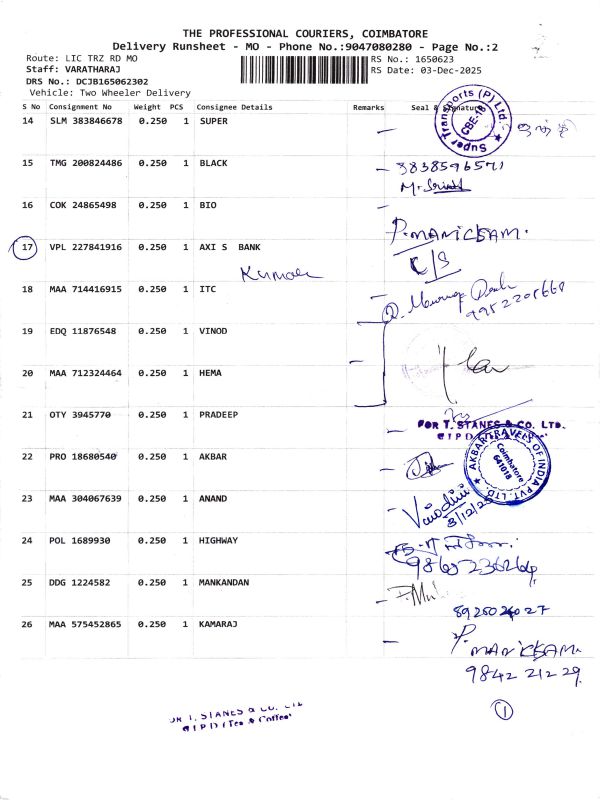 THE PROFESSIONAL COURIERS, COIMBATORE
Delivery Runsheet - MO - Phone No.:9047080280 - Page No.:2
Route: LIC TRZ RD MO
RS No.: 1650623
Staff: VARATHARAJ
RS Date: 03-Dec-2025
DRS No.: DCJB165062302
Vehicle: Two Wheeler Delivery
S No Consignment No Weight PCS Consignee Details Remarks Seal & Signature
14 SLM 383846678 0.250 1 SUPER
Super Transports (P) Ltd.
CBE-18
15 TMG 200824486 0.250 1 BLACK
3838596571
16 COK 24865498 0.250 1 BIO
P. MANICKAM.
17 VPL 227841916 0.250 1 AXI S BANK
C/S
Kumar
18 MAA 714416915 0.250 1 ITC
19 EDQ 11876548 0.250 1 VINOD
20 MAA 712324464 0.250 1 HEMA
21 OTY 3945770 0.250 1 PRADEEP
FOR T. STANES & CO. LTD.
22 PRO 18680540 0.250 1 AKBAR
AKBAR TRAVELS OF INDIA PVT. LTD.
Coimbatore
641018
23 MAA 304067639 0.250 1 ANAND
Vinodini
3/12/25
24 POL 1689930 0.250 1 HIGHWAY
25 DDG 1224582 0.250 1 MANKANDAN
26 MAA 575452865 0.250 1 KAMARAJ
P. MANICKAM.
9842 21229
1